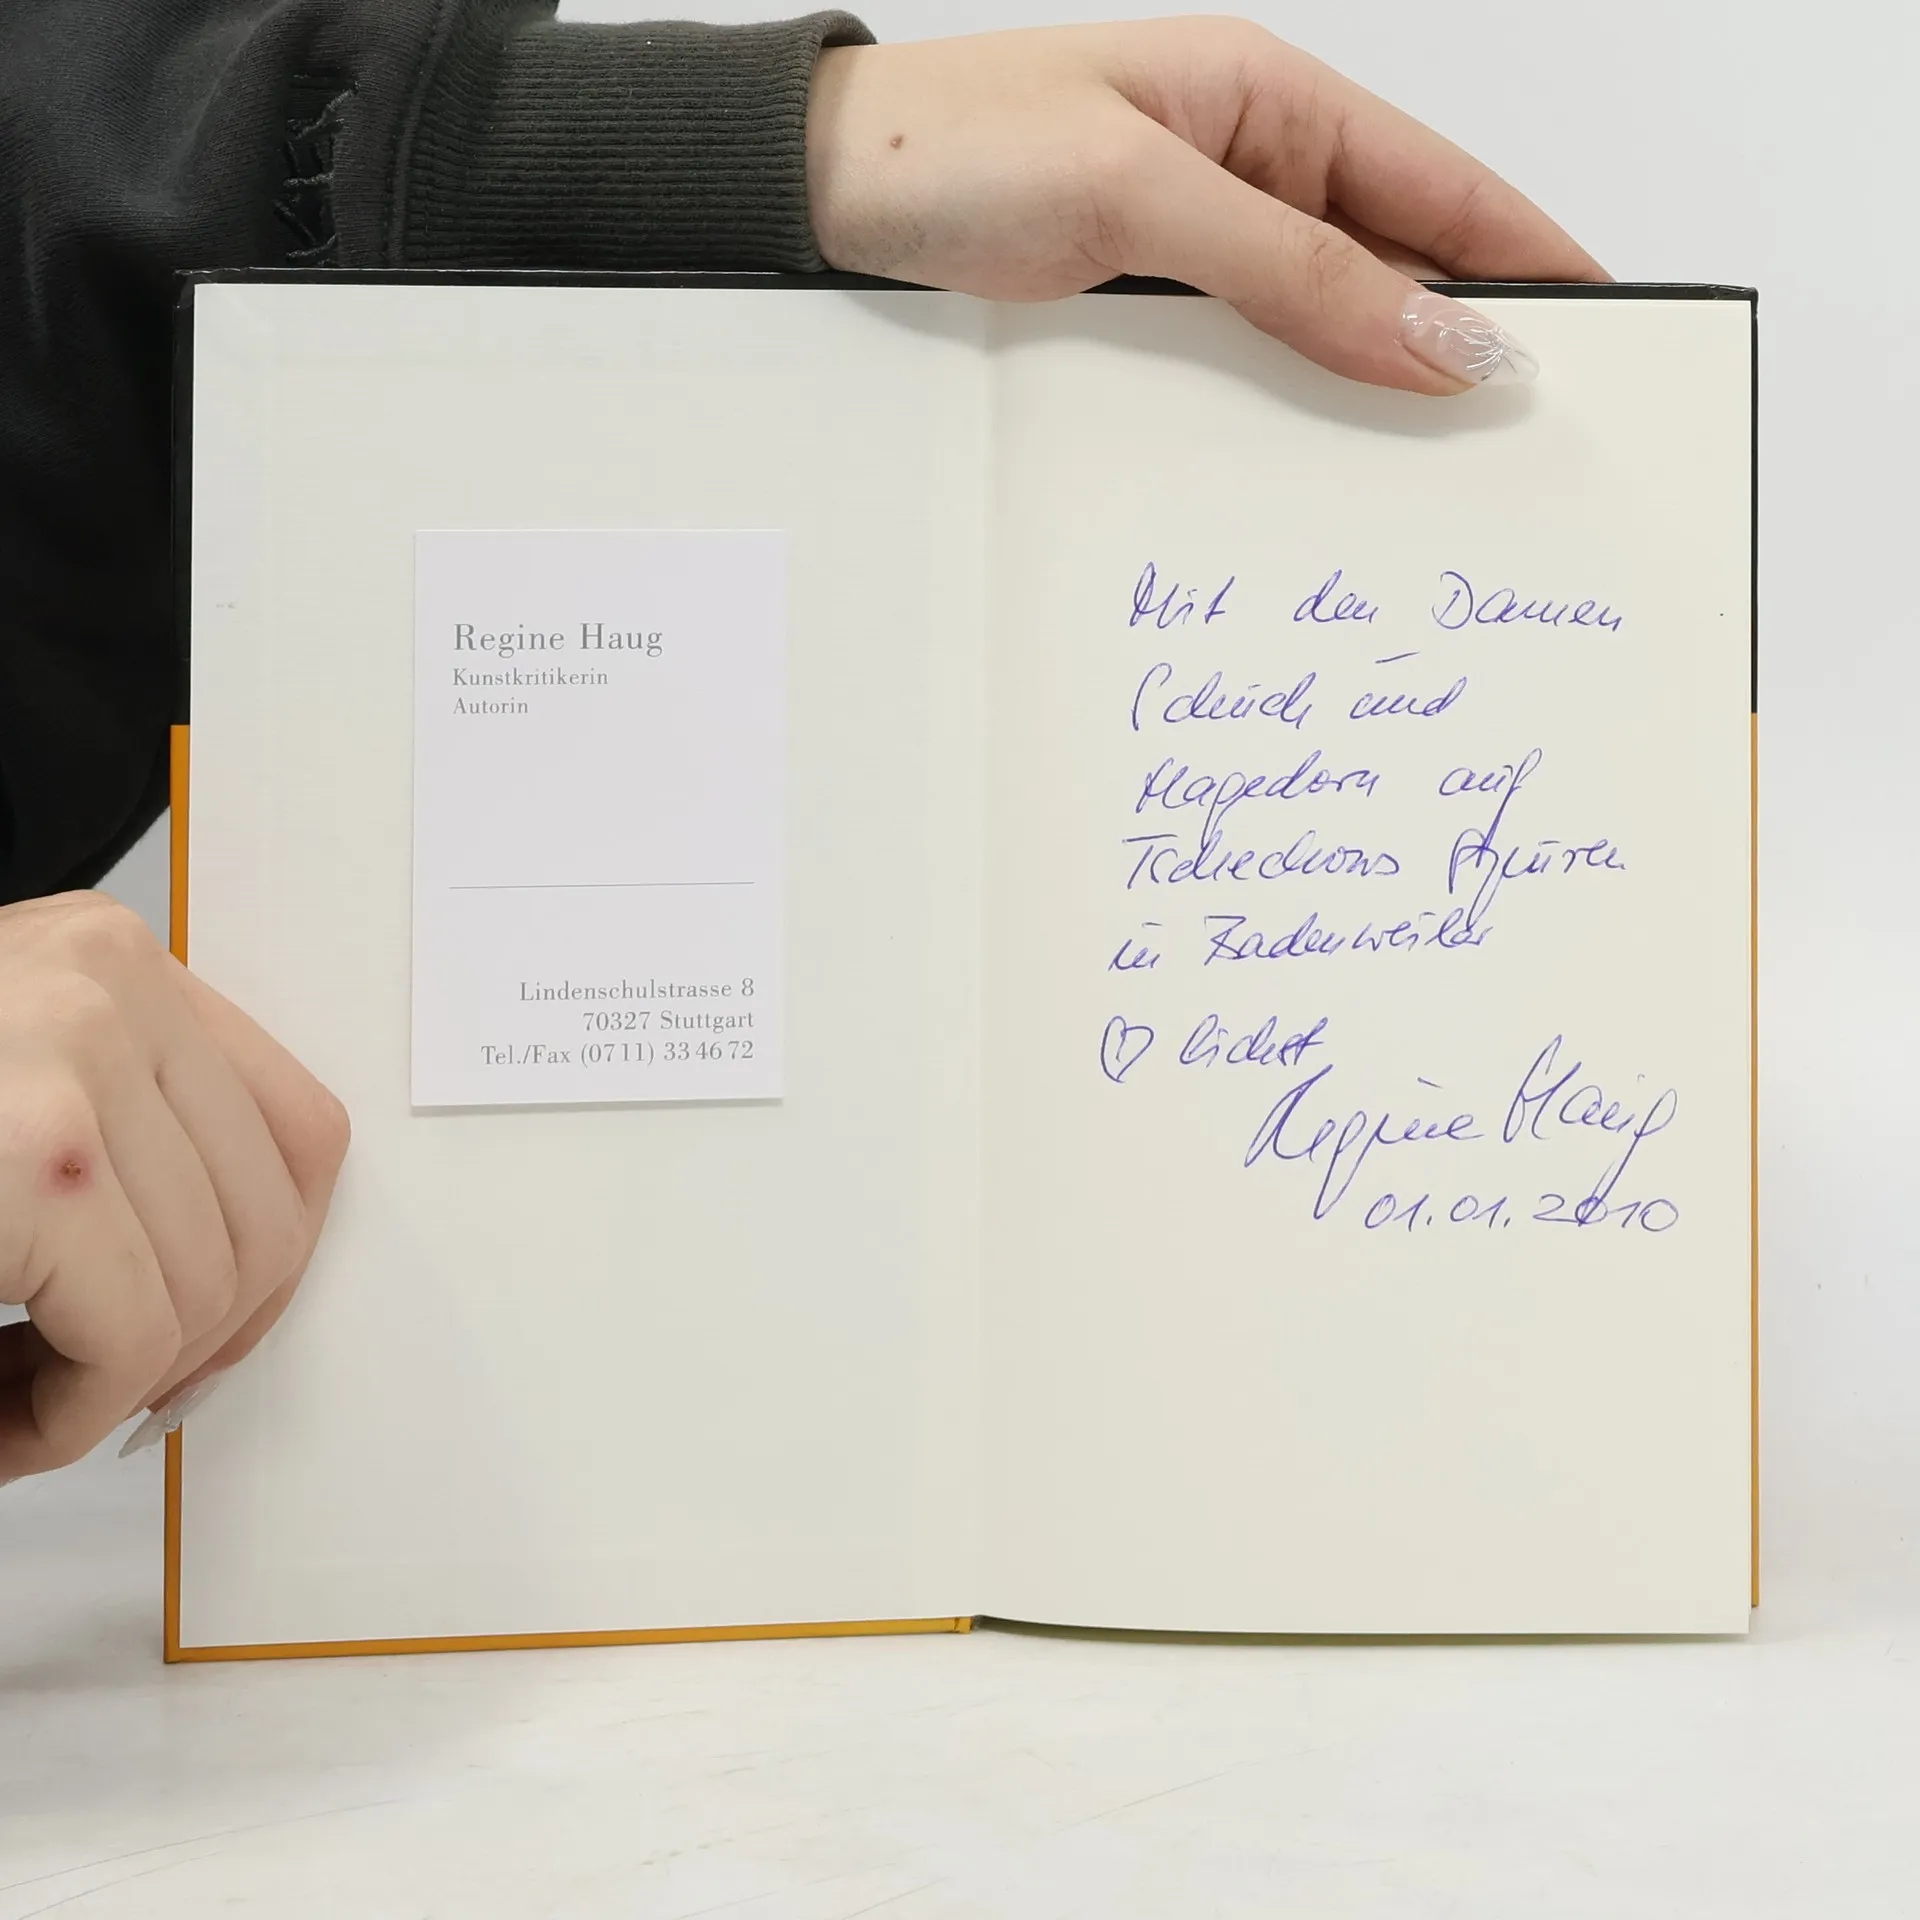 Regine Haug
Kunstkritikerin
Autorin
Lindenschulstrasse 8
70327 Stuttgart
Tel./Fax (0711) 334672
Mit den Damen
und
Hagedorn auf
Tschechows Spuren
in Badenweiler
♡ lichst
Regine Haug
01.01.2010